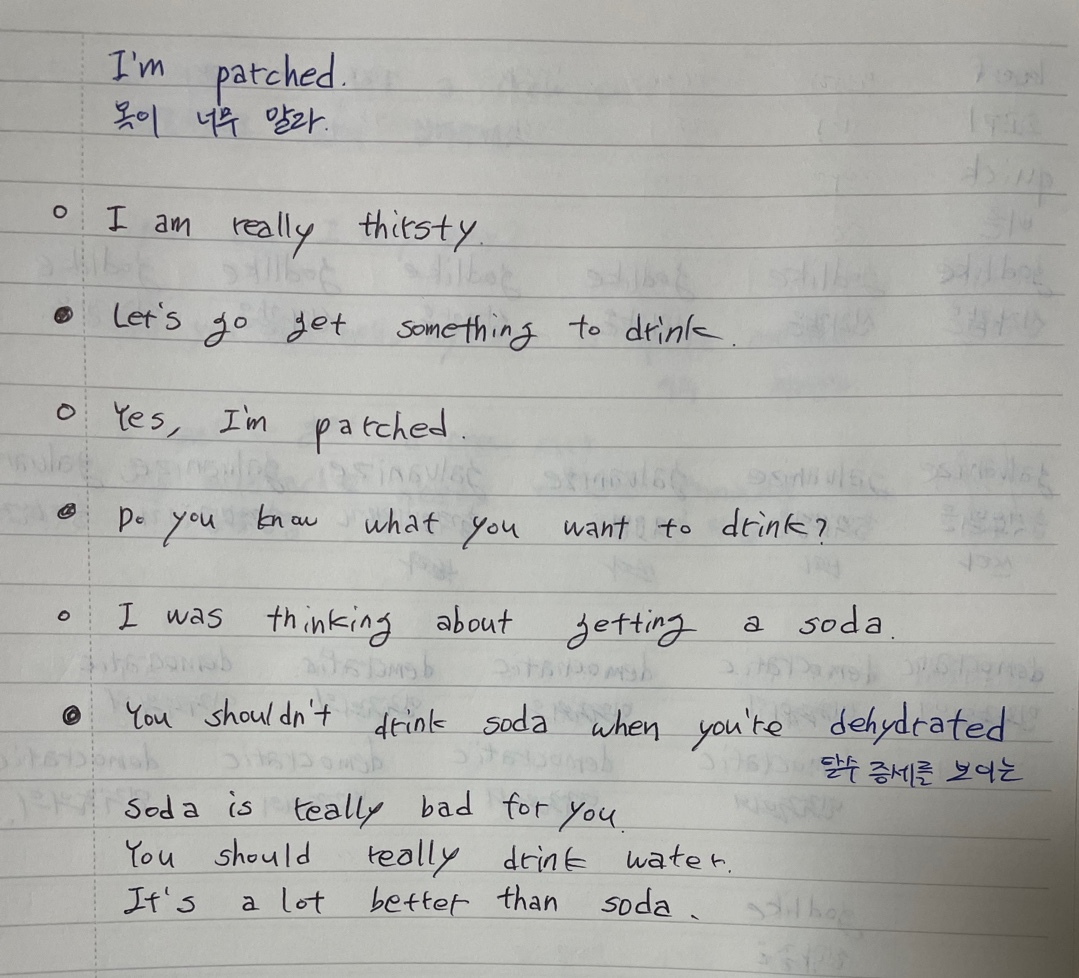 I'm parched.
목이 너무 말라.
I am really thirsty.
Let's go get something to drink.
Yes, I'm parched.
Do you know what you want to drink?
I was thinking about getting a soda.
You shouldn't drink soda when you're dehydrated
탈수 증세를 보이는
Soda is really bad for you.
You should really drink water.
It's a lot better than soda.